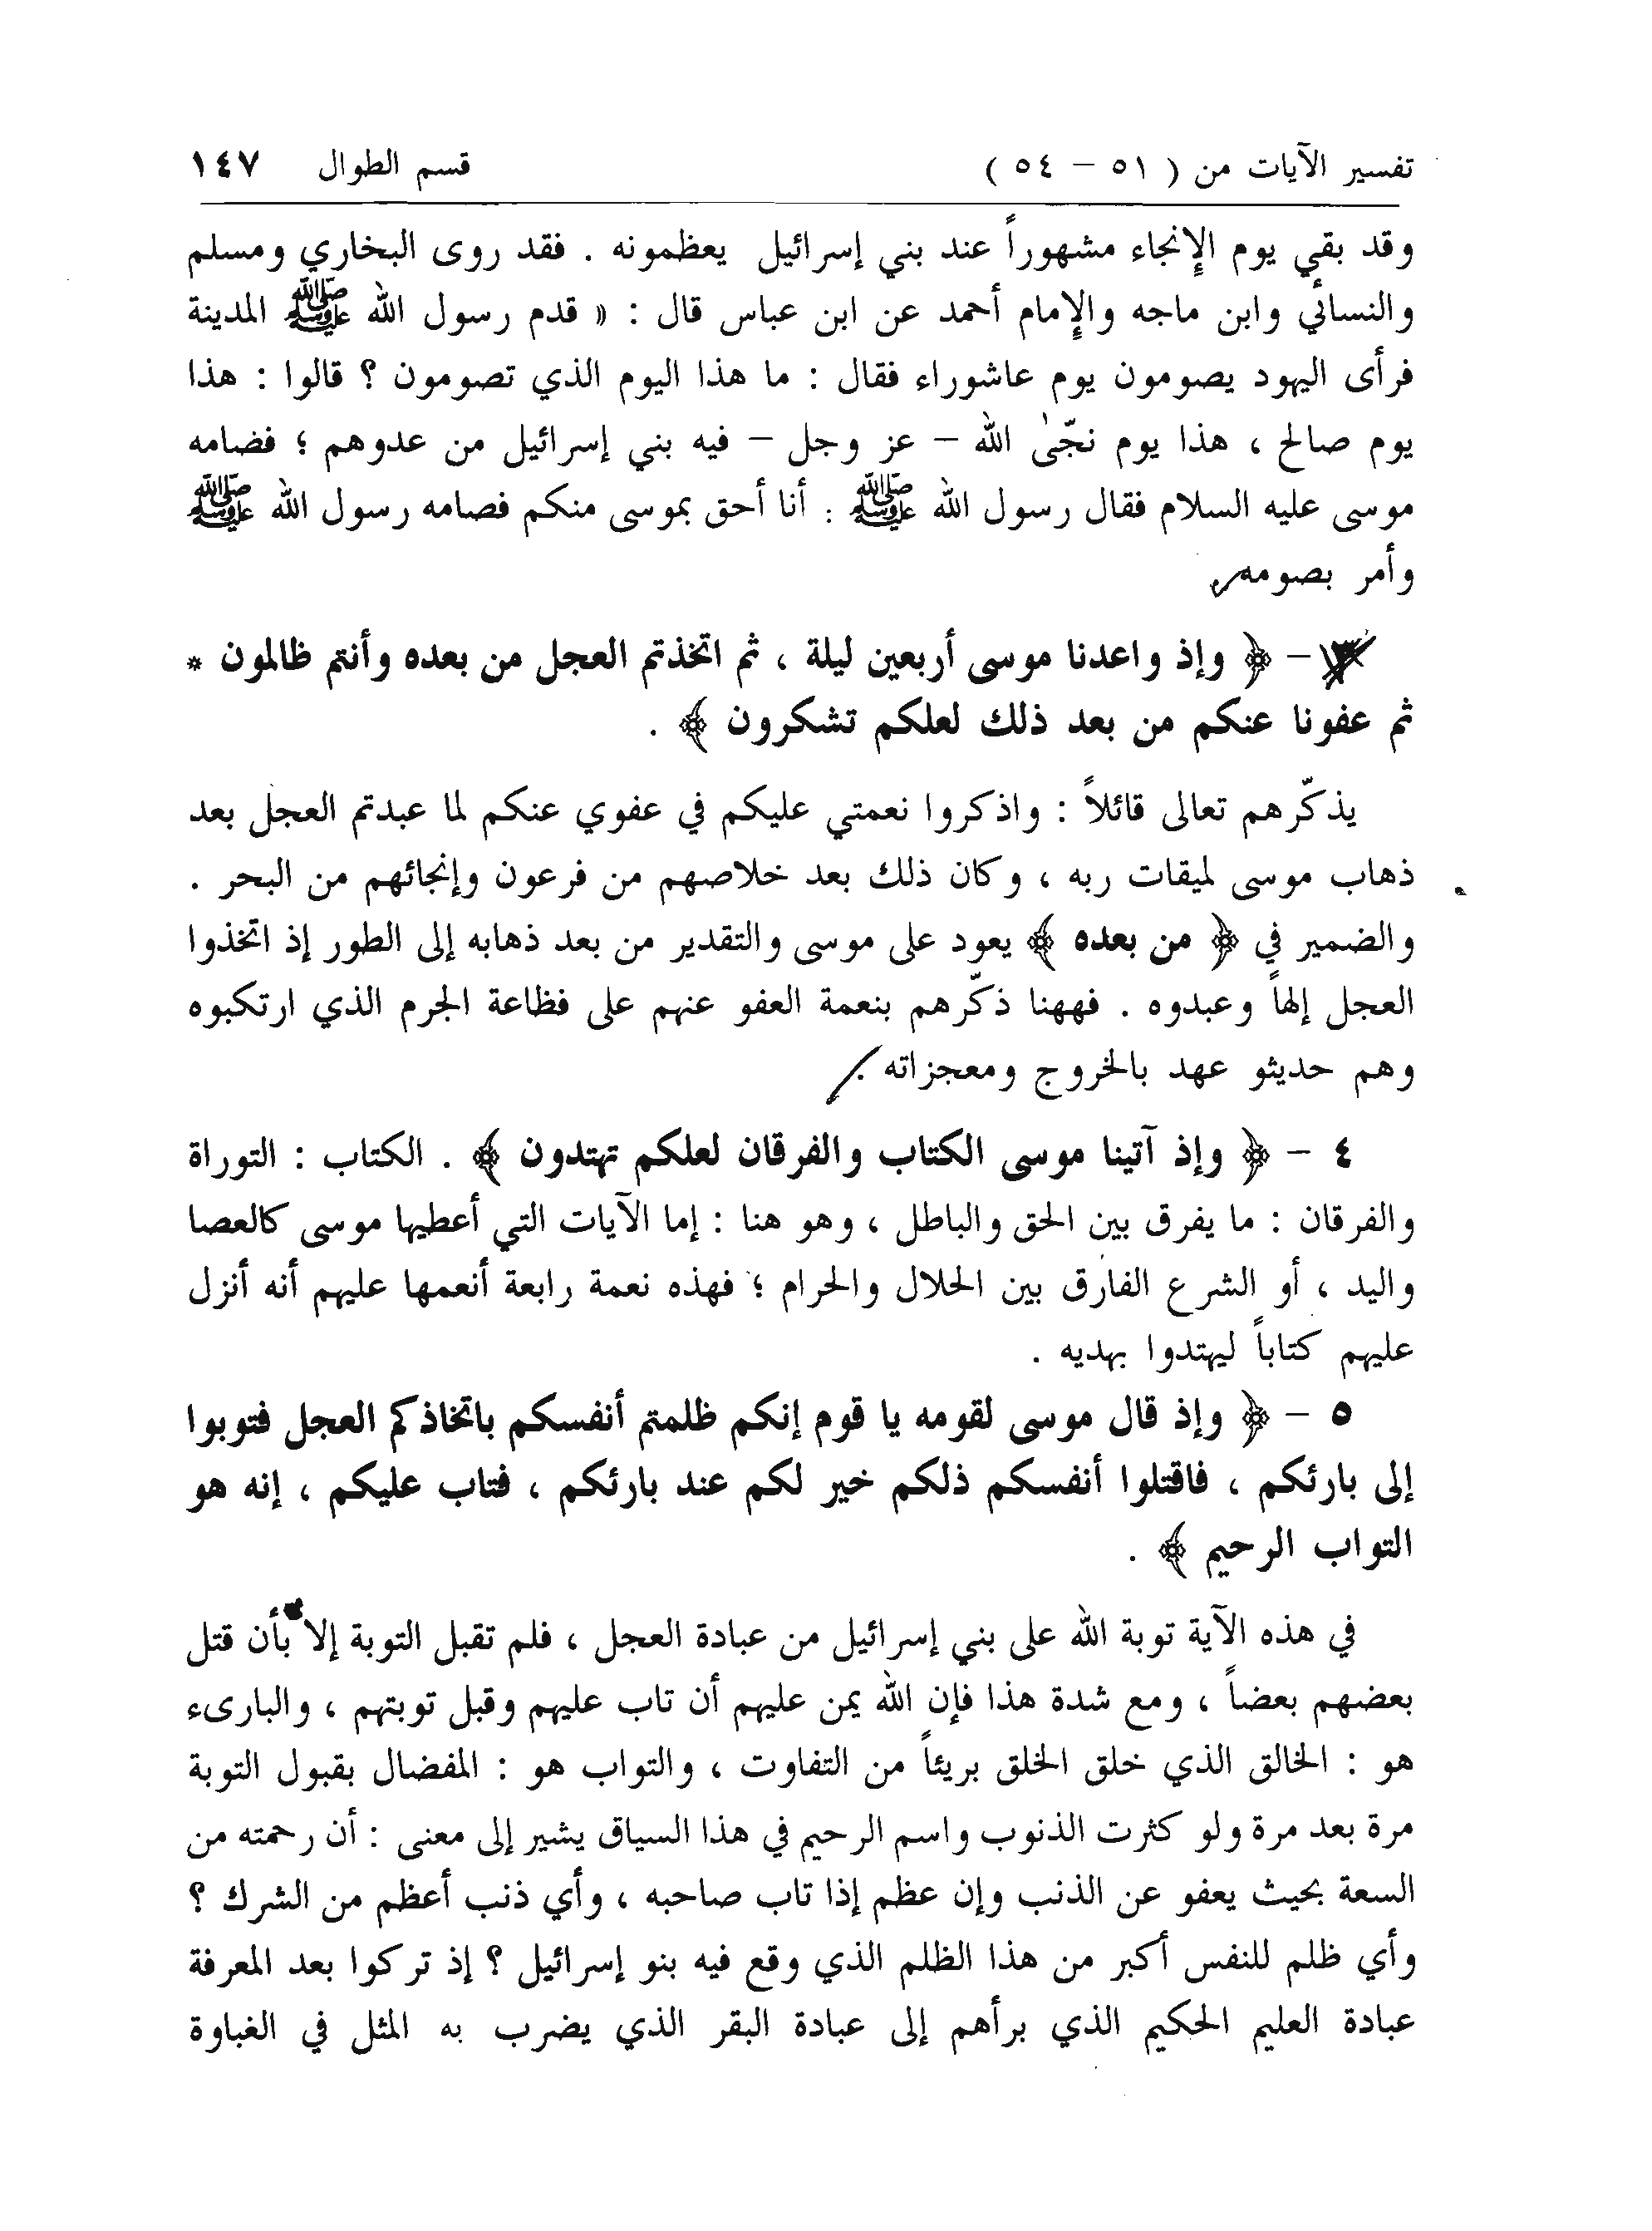 تفسير الآيات من ( ٥١ – ٥٤ ) قسم الطوال ١٤٧
وقد بقي يوم الإِنجاء مشهوراً عند بني إسرائيل يعظمونه . فقد روى البخاري ومسلم
والنسائي وابن ماجه والإِمام أحمد عن ابن عباس قال : « قدم رسول الله ﷺ المدينة
فرأى اليهود يصومون يوم عاشوراء فقال : ما هذا اليوم الذي تصومون ؟ قالوا : هذا
يوم صالح ، هذا يوم نجّىٰ الله – عز وجل – فيه بني إسرائيل من عدوهم ؛ فضامه
موسى عليه السلام فقال رسول الله ﷺ : أنا أحق بموسى منكم فصامه رسول الله ﷺ
وأمر بصومه
– ﴿ وإذ واعدنا موسى أربعين ليلة ، ثم اتخذتم العجل من بعده وأنتم ظالمون *
ثم عفونا عنكم من بعد ذلك لعلكم تشكرون ﴾ .
يذكّرهم تعالى قائلاً : واذكروا نعمتي عليكم في عفوي عنكم لما عبدتم العجل بعد
ذهاب موسى لميقات ربه ، وكان ذلك بعد خلاصهم من فرعون وإنجائهم من البحر .
والضمير في ﴿ من بعده ﴾ يعود على موسى والتقدير من بعد ذهابه إلى الطور إذ اتخذوا
العجل إلهاً وعبدوه . فههنا ذكّرهم بنعمة العفو عنهم على فظاعة الجرم الذي ارتكبوه
وهم حديثو عهد بالخروج ومعجزاته .
٤ – ﴿ وإذ آتينا موسى الكتاب والفرقان لعلكم تهتدون ﴾ . الكتاب : التوراة
والفرقان : ما يفرق بين الحق والباطل ، وهو هنا : إما الآيات التي أعطيها موسى كالعصا
واليد ، أو الشرع الفارق بين الحلال والحرام ؛ فهذه نعمة رابعة أنعمها عليهم أنه أنزل
عليهم كتاباً ليهتدوا بهديه .
٥ – ﴿ وإذ قال موسى لقومه يا قوم إنكم ظلمتم أنفسكم باتخاذكم العجل فتوبوا
إلى بارئكم ، فاقتلوا أنفسكم ذلكم خير لكم عند بارئكم ، فتاب عليكم ، إنه هو
التواب الرحيم ﴾ .
في هذه الآية توبة الله على بني إسرائيل من عبادة العجل ، فلم تقبل التوبة إلا بأن قتل
بعضهم بعضاً ، ومع شدة هذا فإن الله يمن عليهم أن تاب عليهم وقبل توبتهم ، والبارىء
هو : الخالق الذي خلق الخلق بريئاً من التفاوت ، والتواب هو : المفضال بقبول التوبة
مرة بعد مرة ولو كثرت الذنوب واسم الرحيم في هذا السياق يشير إلى معنى : أن رحمته من
السعة بحيث يعفو عن الذنب وإن عظم إذا تاب صاحبه ، وأي ذنب أعظم من الشرك ؟
وأي ظلم للنفس أكبر من هذا الظلم الذي وقع فيه بنو إسرائيل ؟ إذ تركوا بعد المعرفة
عبادة العليم الحكيم الذي برأهم إلى عبادة البقر الذي يضرب به المثل في الغباوة